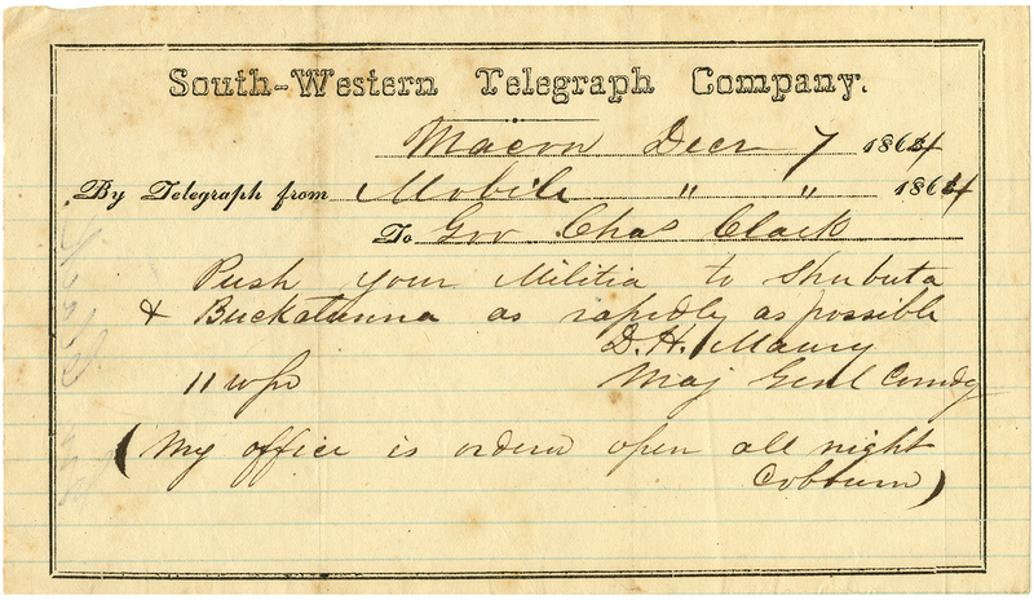 South-Western Telegraph Company.
Macon Decr 7 1864
By Telegraph from Mobile " " 1864
To Gov Chas Clark
Push your Militia to Shubuta
& Buckatunna as rapidly as possible
D. H. Maury
11 wfr Maj Genl Comdg
(My office is ordered open all night
Cobourn)